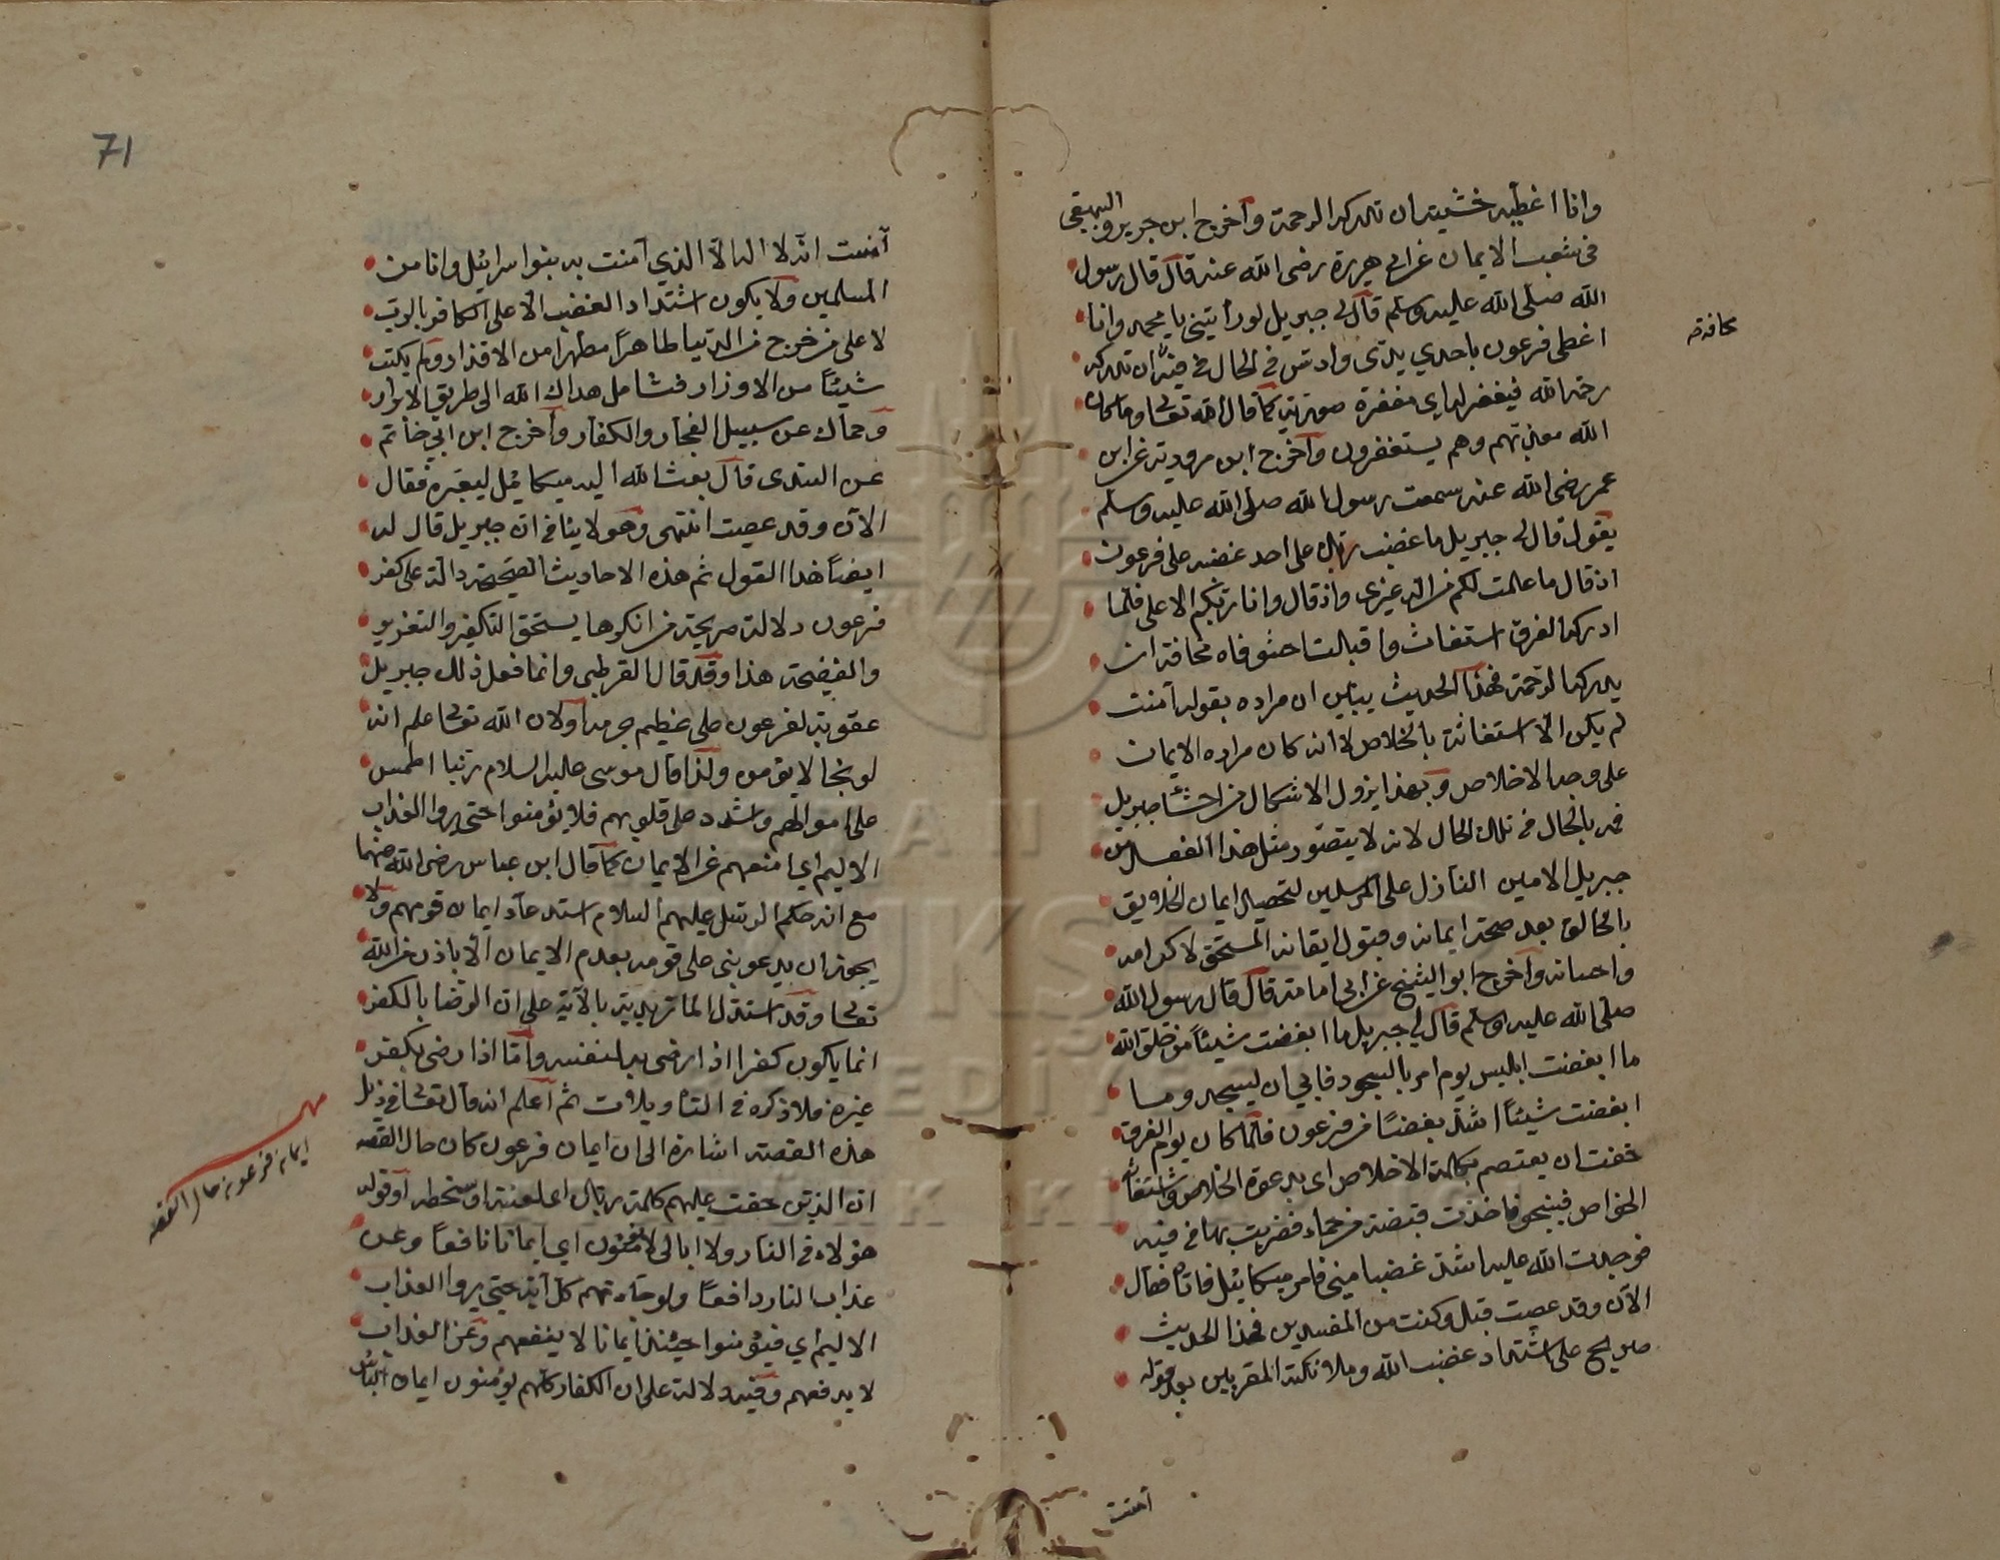 وانا اغطيه خشية ان تدركه الرحمة وأخرج ابن جرير والبيهقي
في شعب الايمان عن ابي هريرة رضى الله عنه قال قال رسول
الله صلى الله عليه وسلم قال لي جبريل لو رأيتني يا محمد وانا
اغطى فرعون باحدي يدي وادس في الحال في فيه ان تدركه
رحمة الله فيغفر له اي مغفرة صورية كما قال الله تعالى وما كان
الله معذبهم وهم يستغفرون وأخرج ابن مردوية عن ابن
عمر رضى الله عنه سمعت رسول الله صلى الله عليه وسلم
يقول قال لي جبريل ما غضب ربك على احد غضبه على فرعون
اذ قال ما علمت لكم من اله غيري واذ قال وانا ربكم الاعلى فلما
ادركه الغرق استغاث واقبلت احشو فاه مخافة ان
يدركه الرحمة فهذا الحديث يبين ان مراده بقوله آمنت
لم يكن الا استغاثة بالخلاص لا انه كان مراده الايمان
على وجه الاخلاص وبهذا يزول الاشكال من احشا جبريل
فمه بالحال في تلك الحال لانه لا يتصور مثل هذا الفعل من
جبريل الامين النازل على المرسلين لتحصيل ايمان الخلايق
بالخالق بعد صحة ايمانه وقبول ايقانه المستحق لاكرامه
واحسانه وأخرج ابو الشيخ عن ابي امامة قال قال رسول الله
صلى الله عليه وسلم قال لي جبريل ما ابغضت شيئاً من خلق الله
ما ابغضت ابليس يوم امر بالسجود فابي ان يسجد وما
ابغضت شيئاً اشد بغضاً من فرعون فلما كان يوم الغرق
خفت ان يعتصم بكلمة الاخلاص اى بدعوة الخلاص واستغاثة
الخواص فينجو فاخذت قبضة من حماء فضربت بها في فيه
فوجدت الله عليه اشد غضبا مني فامر ميكائيل فاتاه فقال
الآن وقد عصيت قبل وكنت من المفسدين فهذا الحديث
صريح على اشتداد غضب الله وملائكته المقربين بعد قوله
آمنت
مخافة صح
71
آمنت انه لا اله الا الذي آمنت به بنوا اسرائيل وانا من
المسلمين ولا يكون اشتداد الغضب الا على الكافر بالرب
لا على من خرج من الدنيا طاهراً مطهرا من الاقذار ولم يكتب
شيئاً من الاوزار فتامل هداك الله الى طريق الابرار
وحماك عن سبيل الفجار والكفار وأخرج ابن ابي حاتم
عن السدى قال بعث الله اليه ميكائيل ليعيره فقال
الآن وقد عصيت انتهى وهو لا ينافي ان جبريل قال له
ايضاً هذا القول ثم هذه الاحاديث الصحيحة دالة على كفر
فرعون دلالة صريحة من انكرها يستحق التكفير والتعزير
والفضيحة هذا وقد قال القرطبي وانما فعل ذلك جبريل
عقوبة لفرعون على عظيم جرمه ولان الله تعالى علم انه
لو نجا لا يؤمن ولذا قال موسى عليه السلام ربنا اطمس
على اموالهم واشدد على قلوبهم فلا يؤمنوا حتى يروا العذاب
الاليم اي امنعهم عن الايمان كما قال ابن عباس رضى الله عنهما
مع ان حكم الرسل عليهم السلام استدعاء ايمان قومهم ولا
يجوز ان يدعو نبي على قومه بعدم الايمان الا باذن من الله
تعالى وقد استدل الماتريدية بالآية على ان الرضا بالكفر
انما يكون كفرا اذا رضى به لنفسه وأما اذا رضى بكفر
غيره فلا ذكره في التاويلات ثم أعلم انه قال تعالى في ذيل
هذه القصة اشارة الى ان ايمان فرعون كان حال الغصه
ان الذين حقت عليهم كلمة ربك اى لعنته او سخطه أو قوله
هؤلاء في النار ولا ابالى لا يؤمنون اي ايمانا نافعاً وعن
عذاب النار دافعاً ولو جاءتهم كل آية حتى يروا العذاب
الاليم اي فيؤمنوا حينئذ ايمانا لا ينفعهم وعن العذاب
لا يدفعهم وفيه دلالة على ان الكفار كلهم يؤمنون ايمان الباس
ايمان فرعون حال الغصه